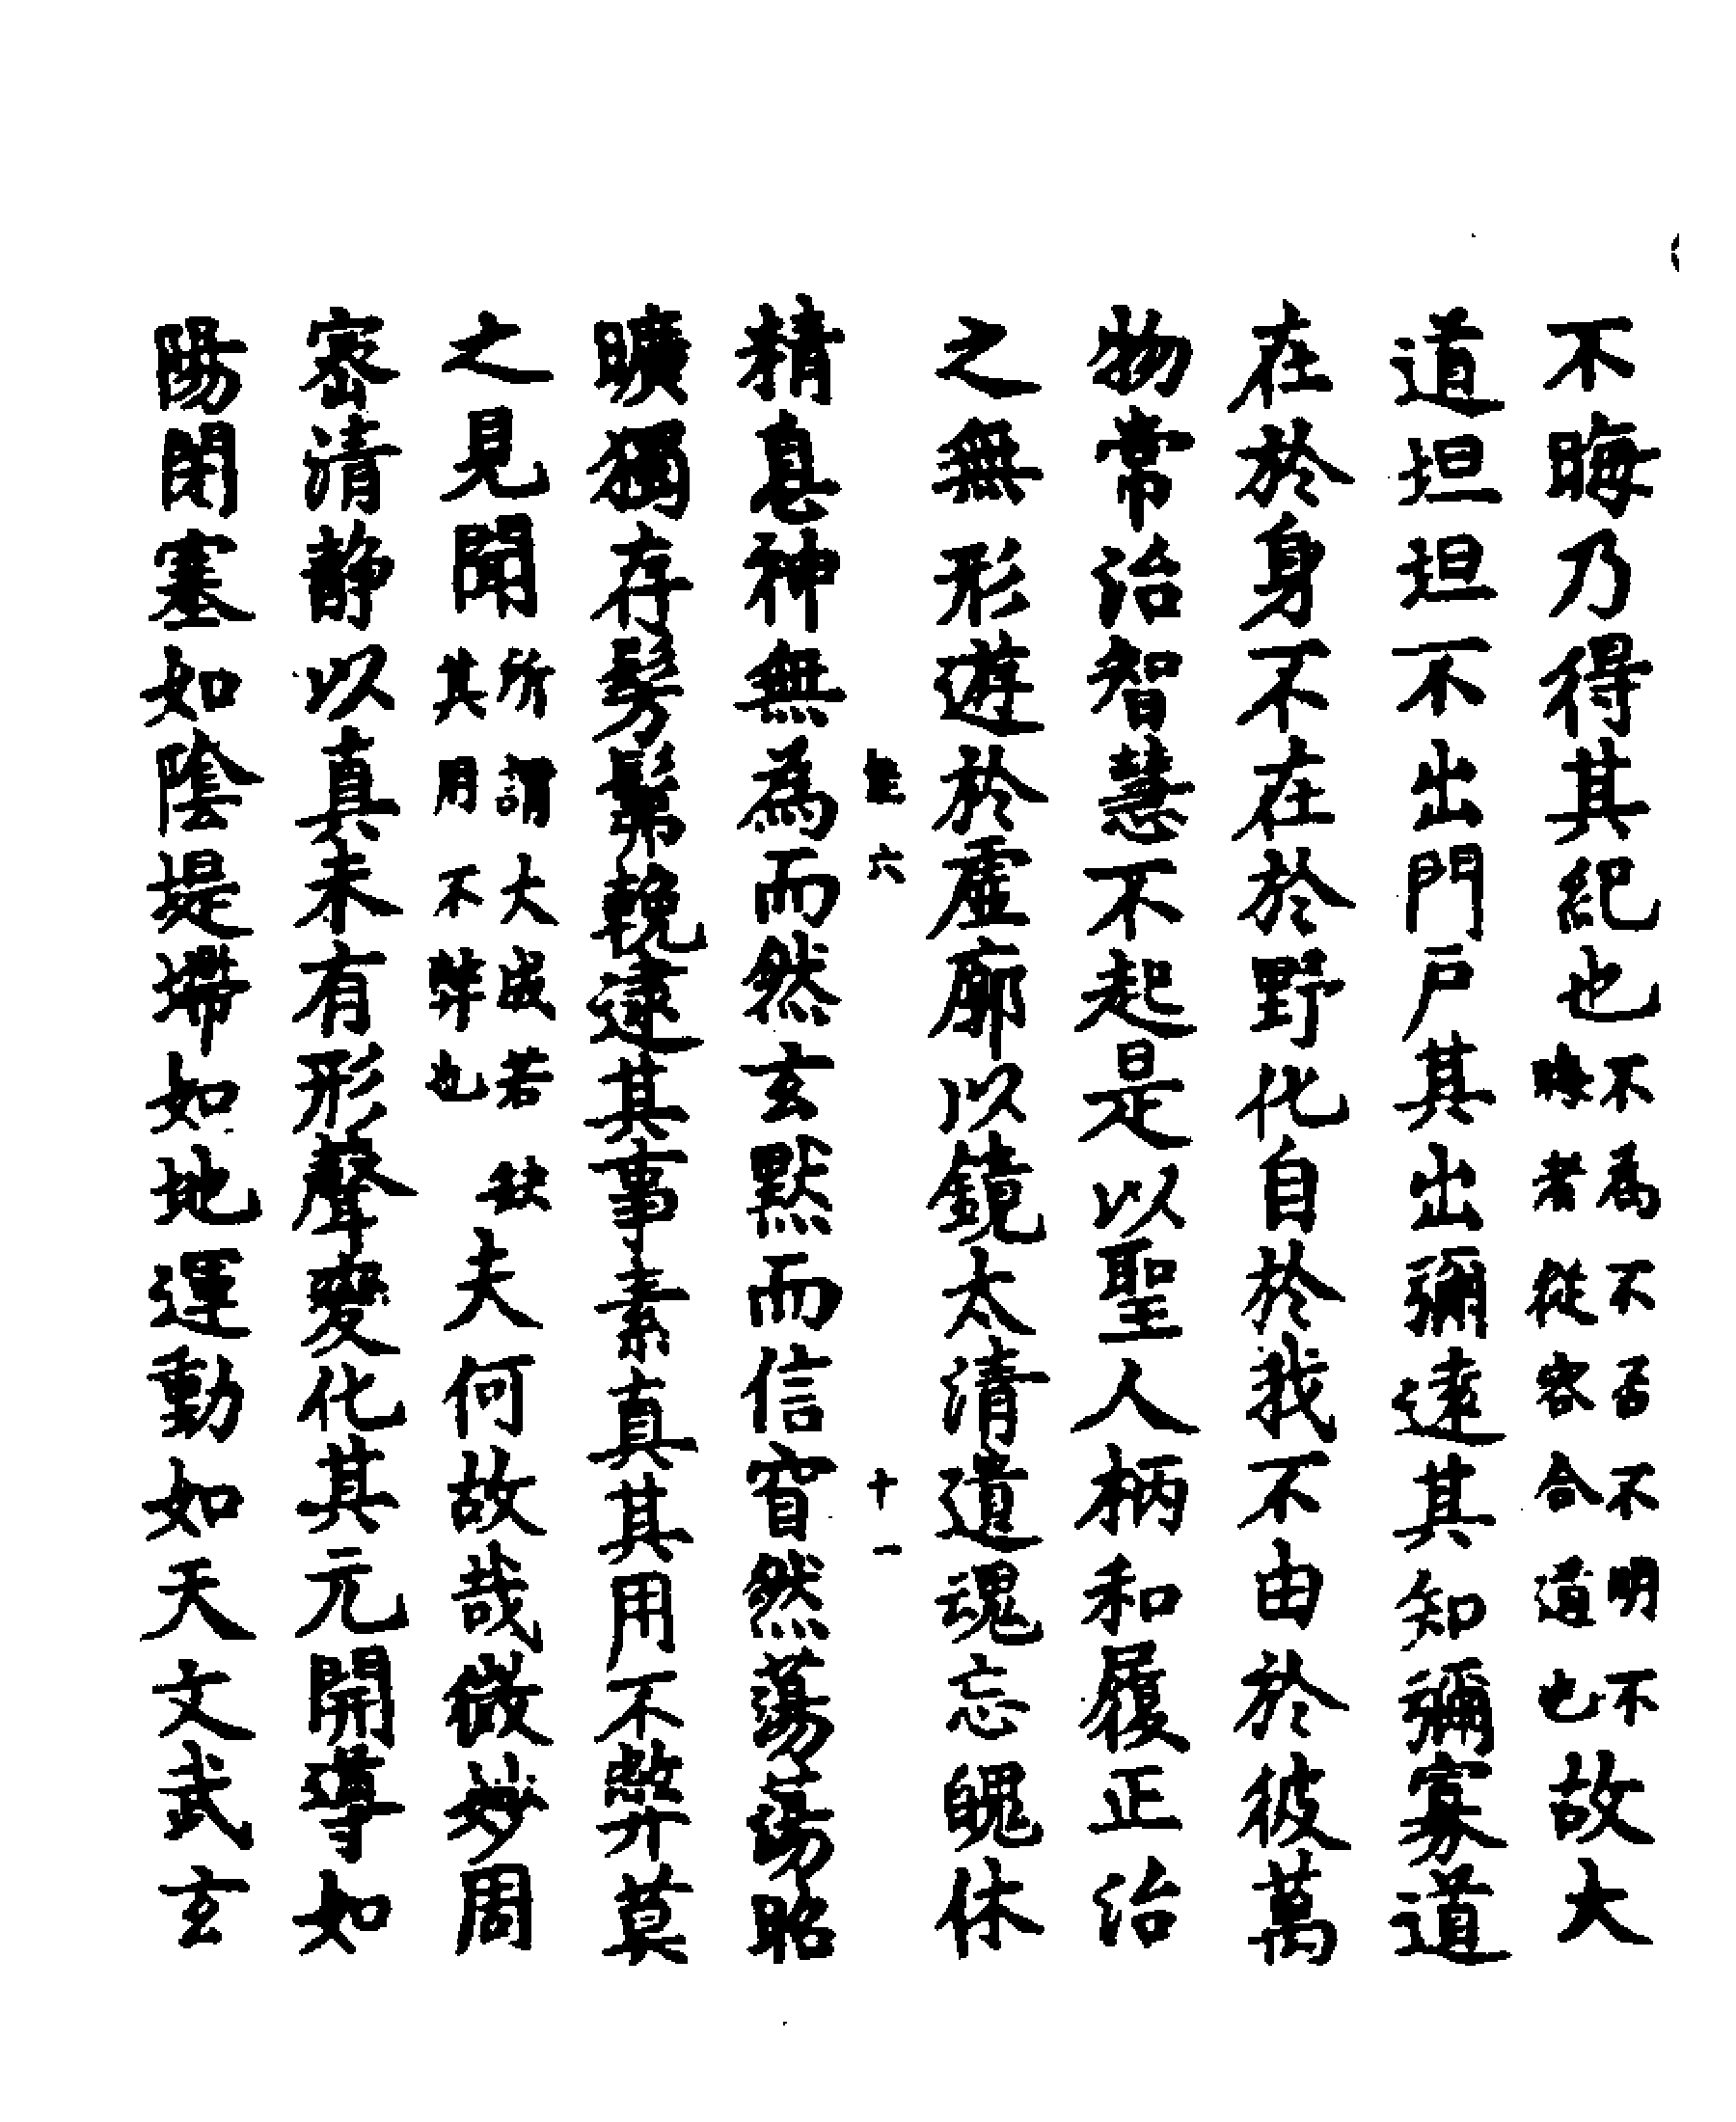 不晦乃得其紀也不爲不否不明不晦者從容合道也故大
道坦坦不出門戶其出彌遠其知彌寡道
在於身不在於野化自於我不由於彼萬
物常治智慧不起是以聖人柄和履正治
之無形遊於虛廓以鏡太清遺魂忘魄休
六 十一
精息神無為而然玄默而信窅然蕩蕩昭
曠獨存髣髴輓逮其事素真其用不弊莫
之見聞所謂大成若缺其用不弊也夫何故哉微妙周
密清静以真未有形聲變化其元開導如
陽閉塞如陰堤墆如地運動如天文武玄